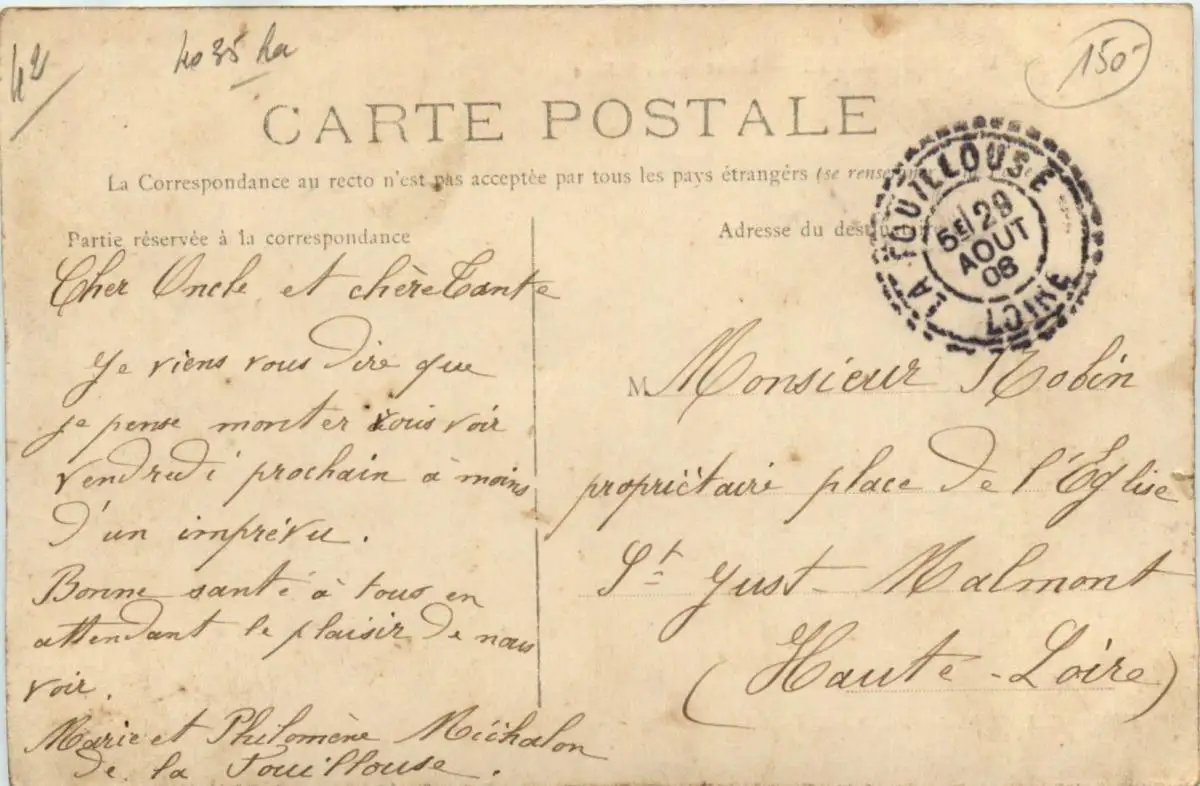 42
4035 La
150-
CARTE POSTALE
La Correspondance au recto n'est pas acceptée par tous les pays étrangers (se renseigner
Partie réservée à la correspondance
Cher Oncle et chère Tante
Je viens vous dire que
je pense monter vous voir
vendredi prochain à moins
d'un imprévu.
Bonne santé à tous en
attendant le plaisir de nous
voir.
Marie et Philomène Michalon
de la Fouillouse.
Adresse du destinataire
LA FOUILLOUSE
5E/29
AOUT
08
LOIRE
M Monsieur Robin
propriétaire place de l'Église
St Just-Malmont
(Haute-Loire)